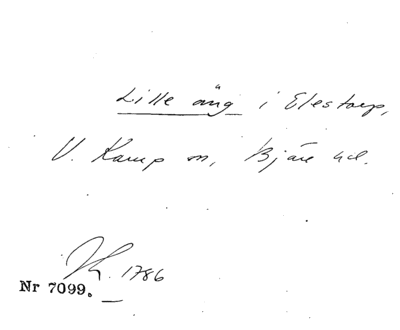 Lille äng i Elestorp,
V. Karup sn, Bjäre hd.
1786
Nr 7099.